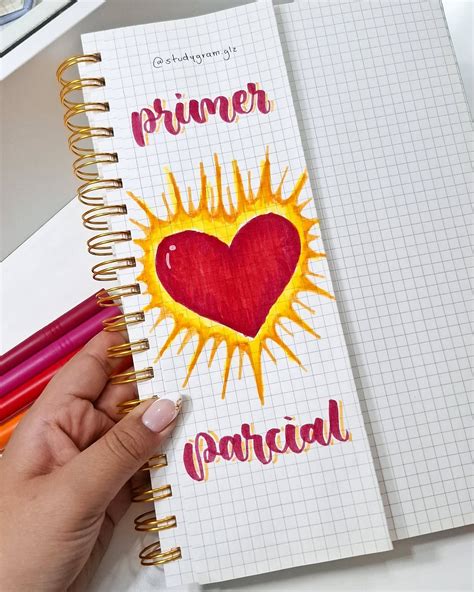 @studygram.glz
primer
parcial